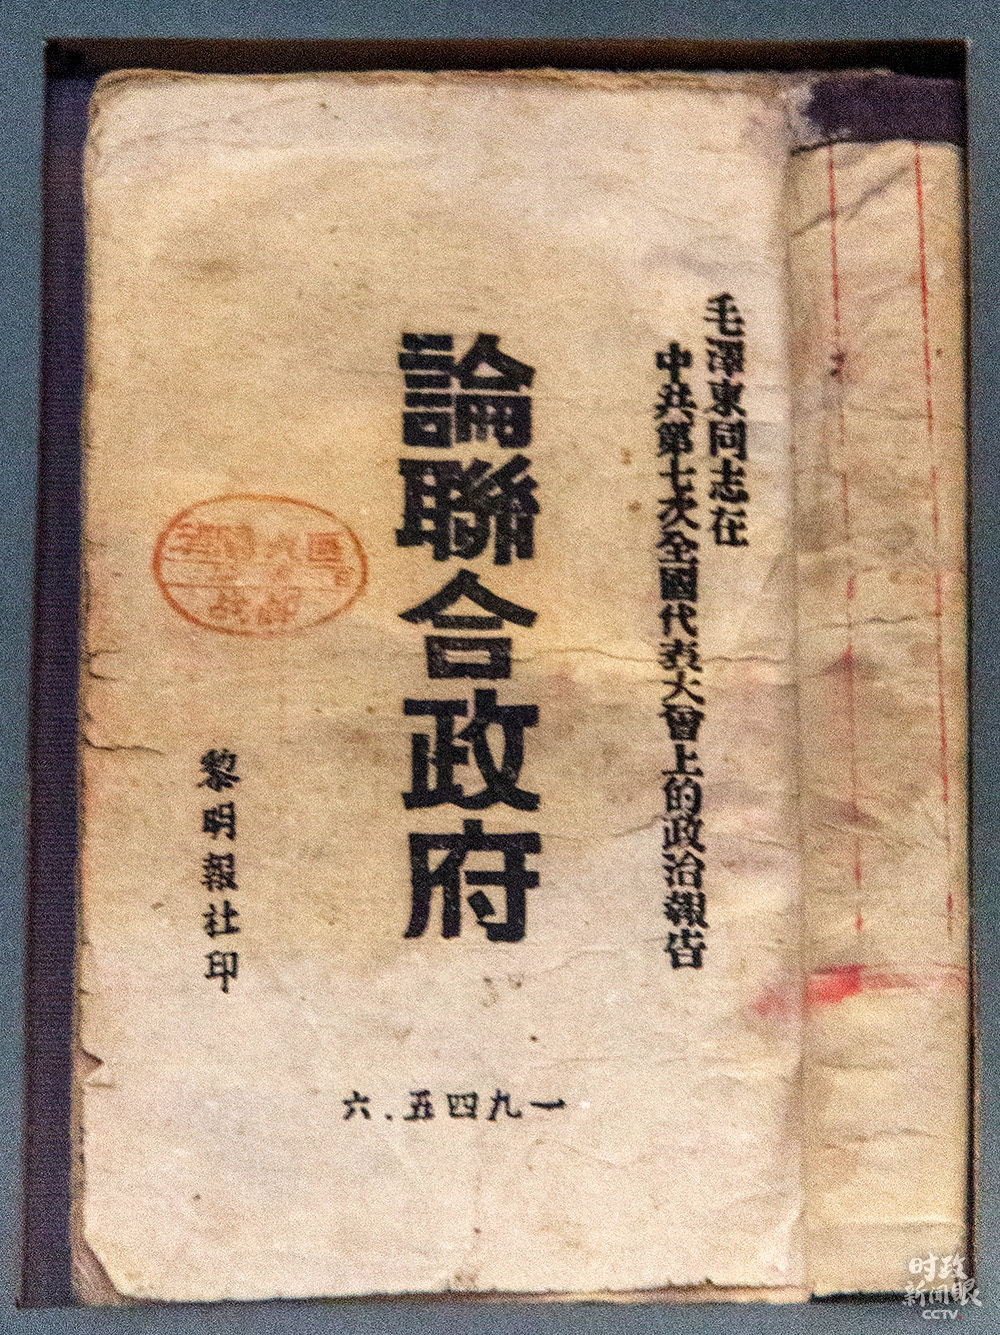 毛澤東同志在
中共第七次全國代表大會上的政治報告
論聯合政府
黎明報社印
六．五四九一
时政
新闻眼
CCTV